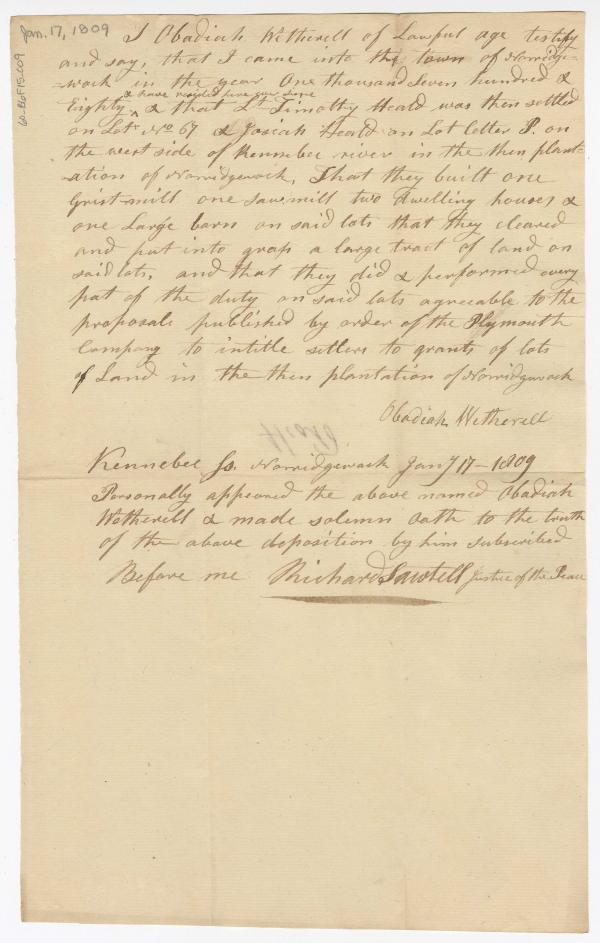 Jan. 17, 1809
I Obadiah Wetherell of Lawful age testify
and say, that I came into the town of Norridge-
-wock in the year One thousand Seven hundred &
& have resided here ever since
Eighty ^ & that Lt. Timothy Heald was then settled
on Lot No 67 & Josiah Heald on Lot letter P. on
the west side of Kennebec river in the then plant-
-ation of Norridgewock, That they built one
Grist-mill one sawmill two dwelling houses &
one Large barn on said lots that they cleared
and put into grass a large tract of land on
said lots, and that they did & performed every
pat of the duty on said lots agreeable to the
proposals published by order of the Plymouth
Company to intitle setlers to grants of lots
of Land in the then plantation of Norridgewock
Obadiah Wetherell
Kennebec Ss. Norridgewock Jany 17 - 1809
Personally appeared the above named Obadiah
Wetherell & made solemn Oath to the truth
of the above deposition by him subscribed
Before me Richard Sawtell Justice of the Peace